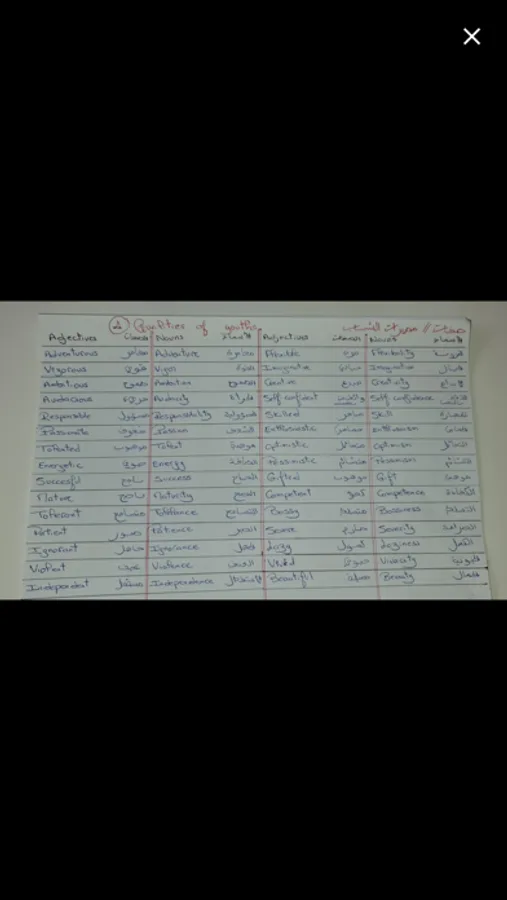 2 Qualities of youths صفات // مميزات الشباب
Adjectives الصفات Nouns الأسماء Adjectives الصفات Nouns الأسماء
Adventurous مغامر Adventure مغامرة Flexible مرن Flexibility المرونة
Vigorous قوي Vigor القوة Imaginative Imagination
Ambitious طموح Ambition الطموح Creative مبدع Creativity الإبداع
Audacious Audacity Self confident Self confidence
Responsible مسؤول Responsability المسؤولية Skilled ماهر Skill المهارة
Passionate Passion الشغف Enthusiastic متحمس Enthusiasm
Talented موهوب Talent موهبة Optimistic متفائل Optimism التفاؤل
Energetic Energy الطاقة Pessimistic متشائم Pessimism التشاؤم
Succesful ناجح Success النجاح Gifted موهوب Gift موهبة
Mature ناضج Maturity النضج Competent كفؤ Competence الكفاءة
Tolerant متسامح Tolerance التسامح Bossy متسلط Bossiness التسلط
Patient صبور Patience الصبر Severe صارم Severity الصرامة
Ignorant جاهل Ignorance الجهل Lazy كسول Laziness الكسل
Violent عنيف Violence العنف Vivid Vivacity
Independent مستقل Independence الاستقلال Beautiful جميلة Beauty الجمال